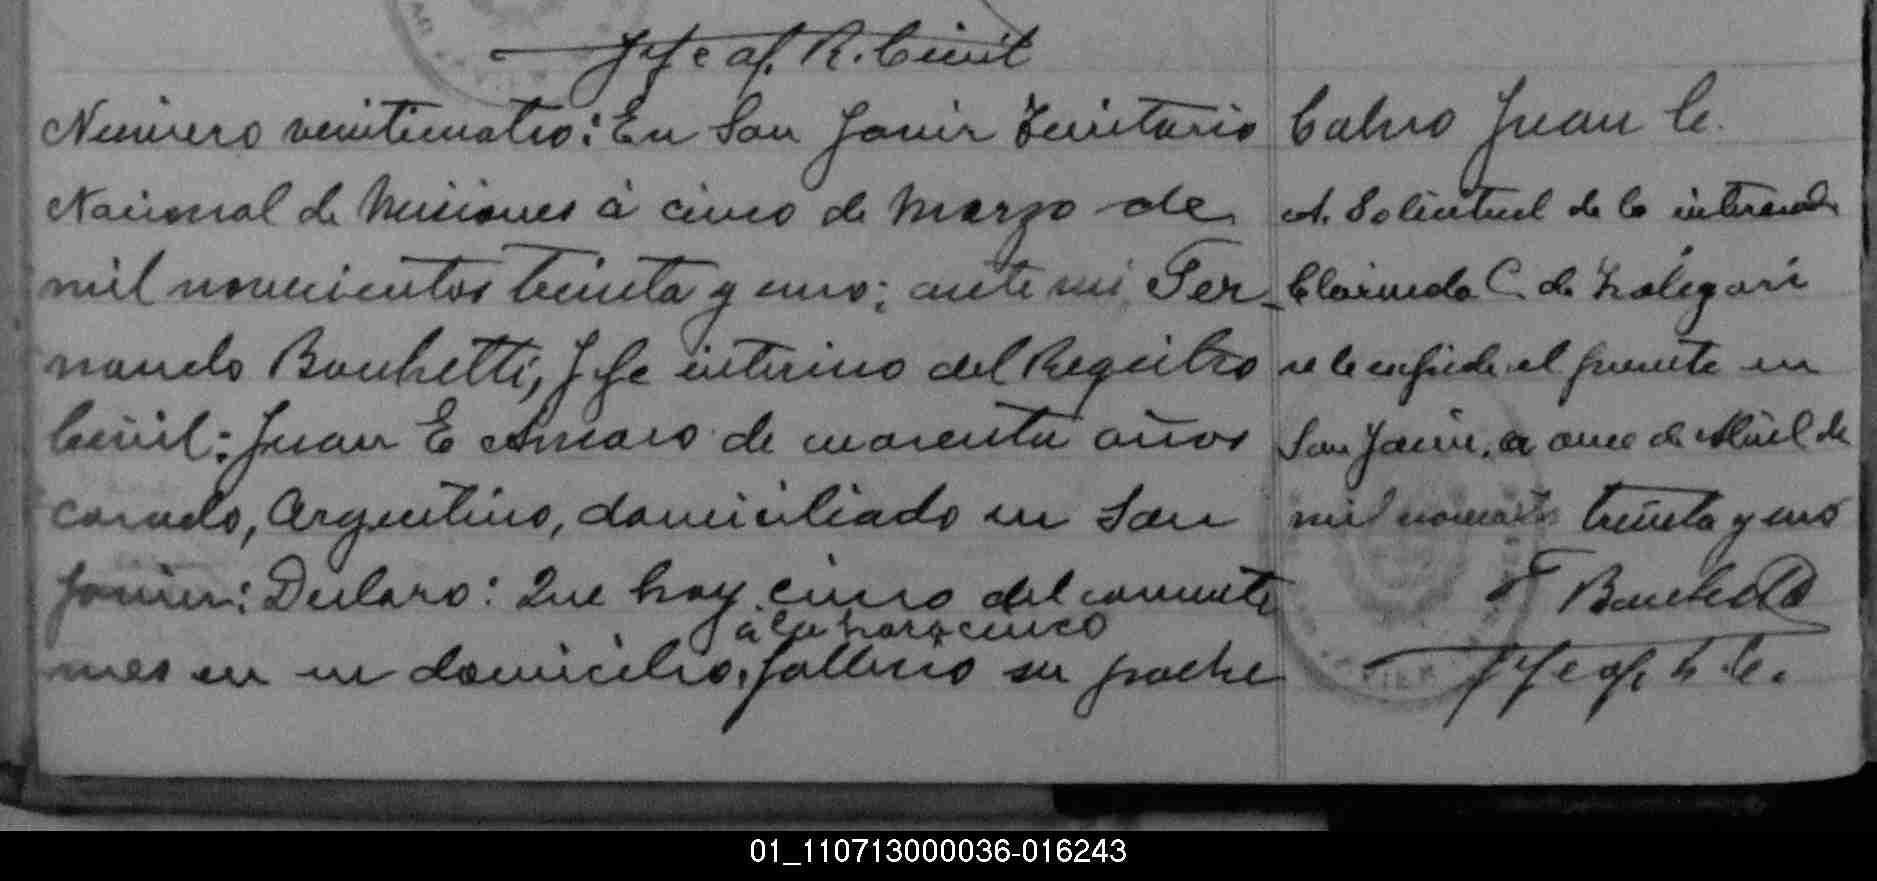 Jefe of. R. Civil
Numero veinticuatro: En San Javier Territorio
Nacional de Misiones á cinco de Marzo de
mil novecientos treinta y uno; ante mi Fer-
nando Bouchetti, Jefe interino del Registro
Civil: Juan E Amaro de cuarenta años
casado, Argentino, domiciliado en San
Javier: Declaro: Que hoy cinco del corriente
á la hora cinco
mes en su domicilio, fallecio su padre
Calvo Juan C.
A. Solicitud de la interesada
Clorinda C. de
se le expide el presente en
San Javier, a once de Abril de
mil novecientos treinta y uno
F Bouchetti
Jefe of. R. C.
01_110713000036-016243